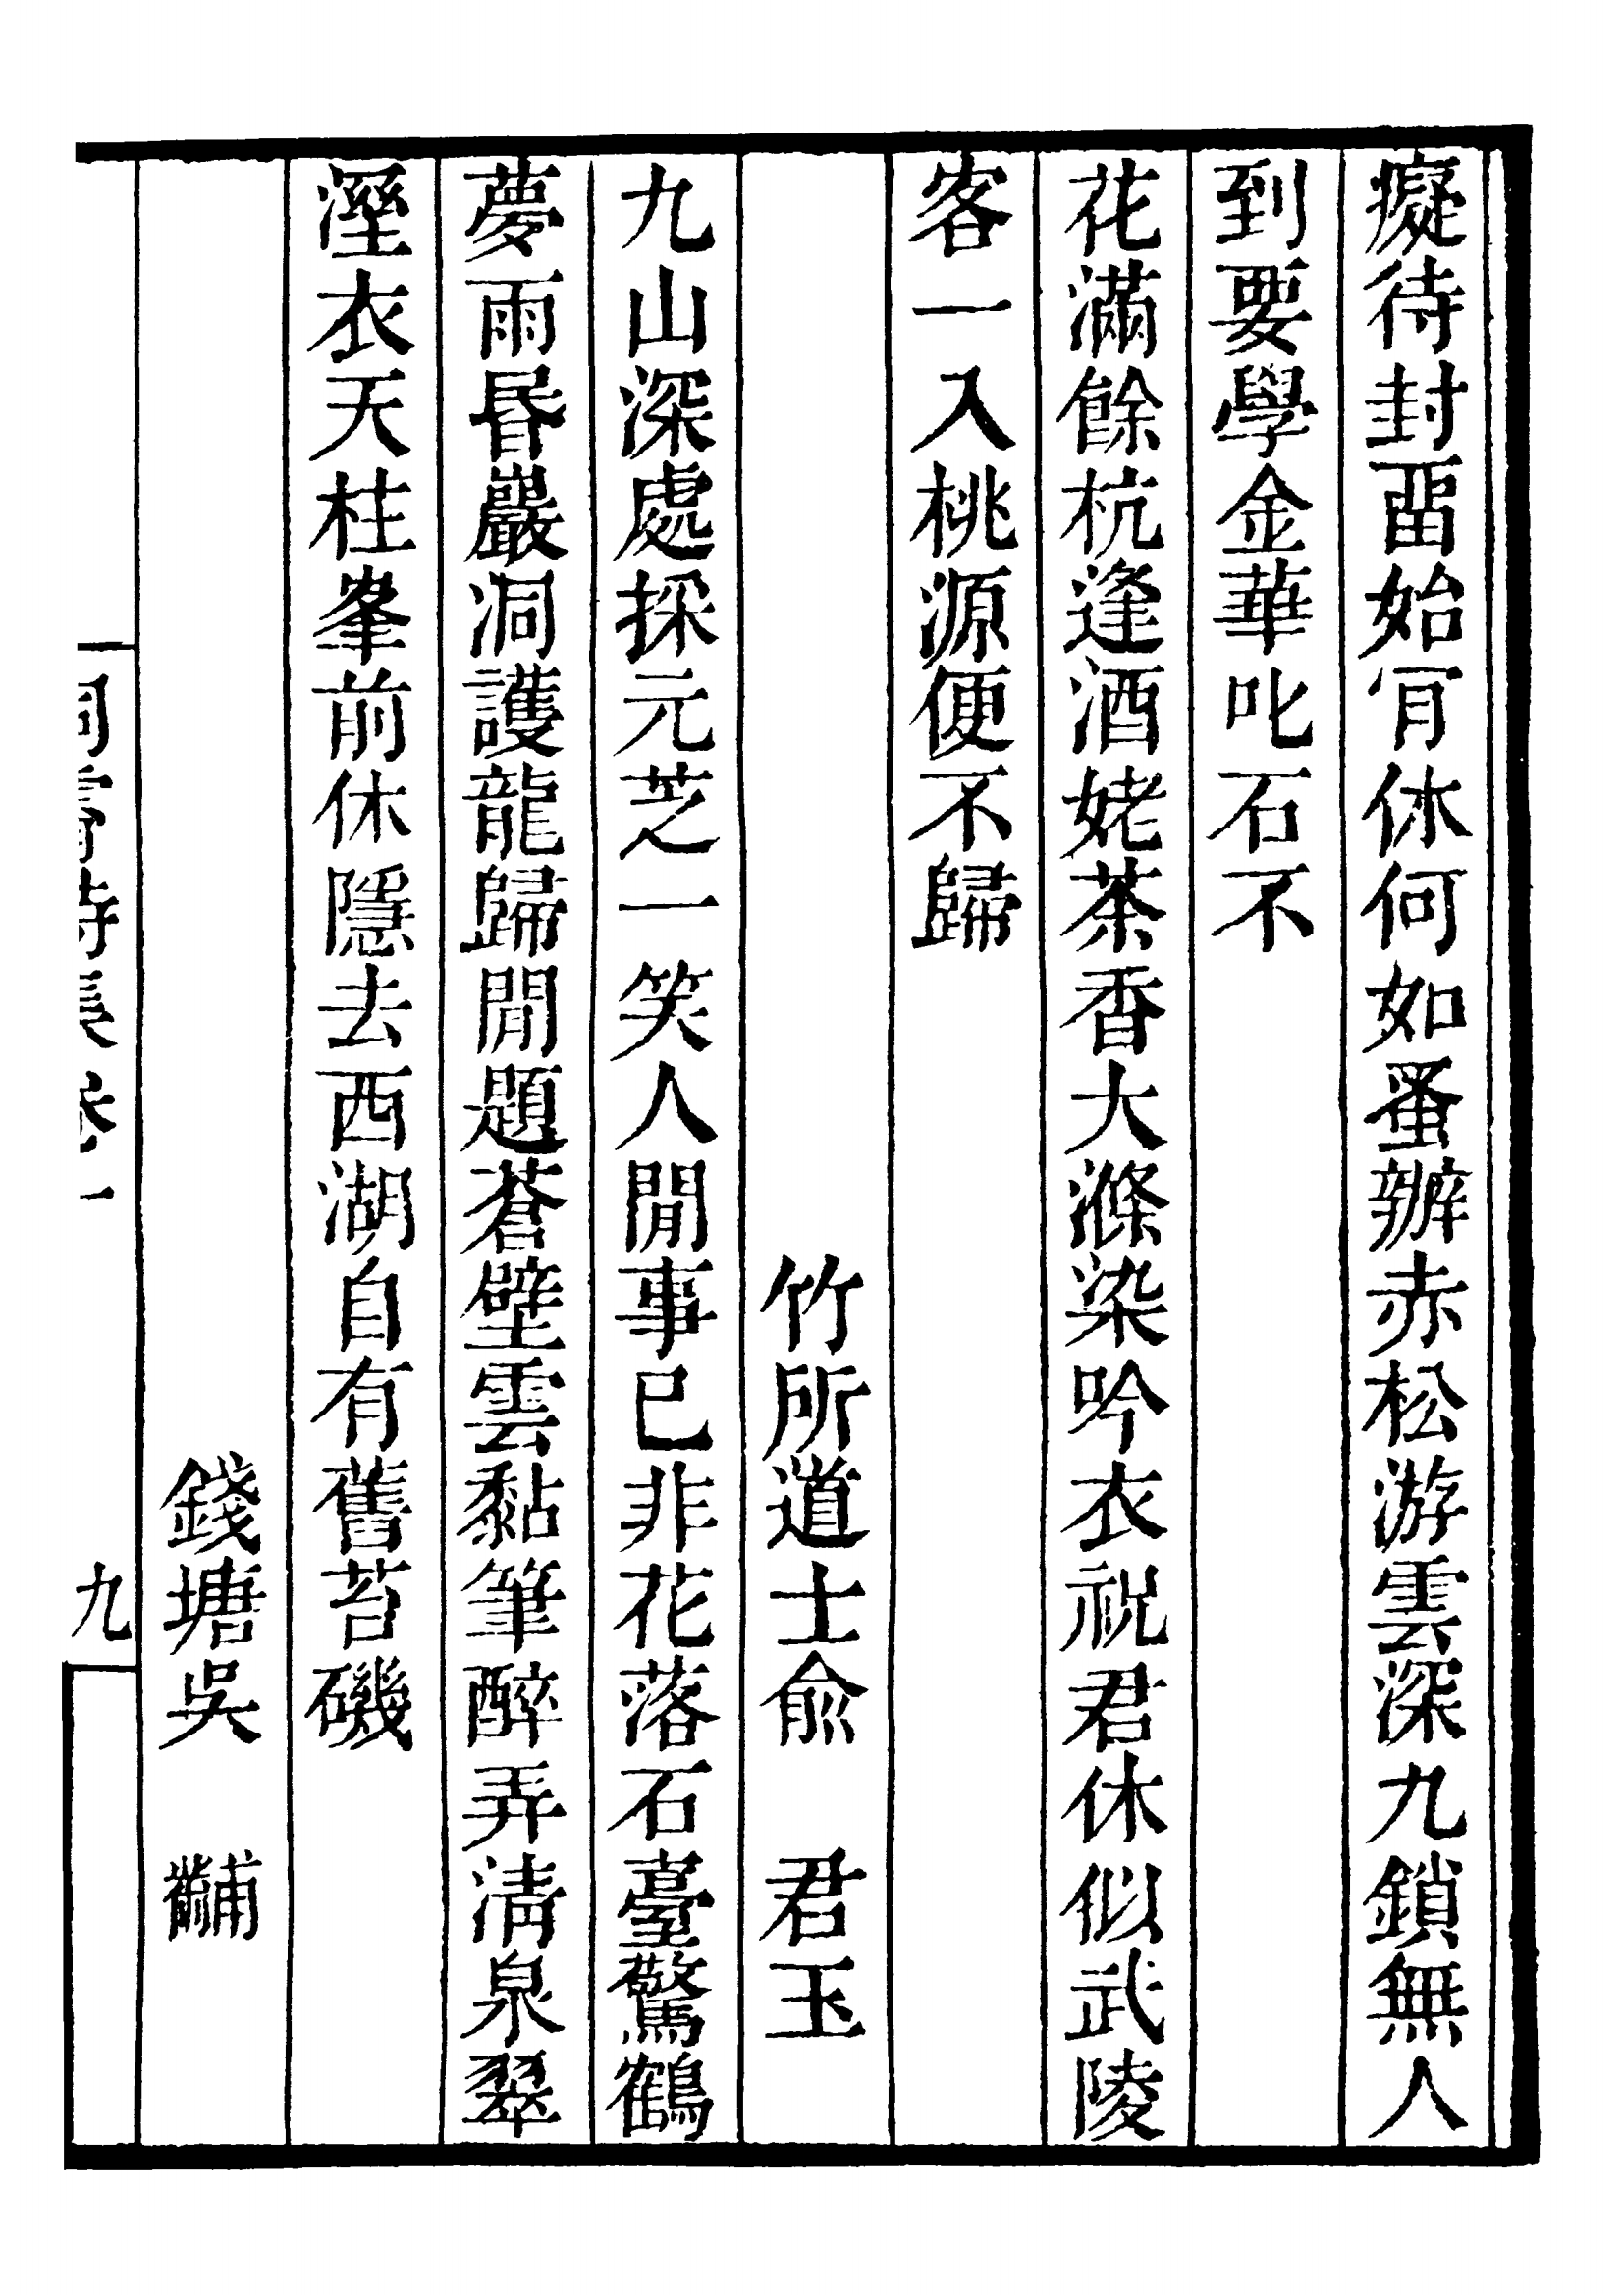 癡待封畱始肎休何如蚤辦赤松游雲深九鎖無人
到要學金華叱石不
花滿餘杭逢酒姥茶香大滌染吟衣祝君休似武陵
客一入桃源便不歸
竹所道士俞　君玉
九山深處採元芝一笑人閒事已非花落石臺驚鶴
夢雨昬巖洞護龍歸閒題蒼壁雲黏筆醉弄清泉翠
溼衣天柱峯前休隱去西湖自有舊苔磯
錢塘吳　黼
洞霄詩集卷一　九